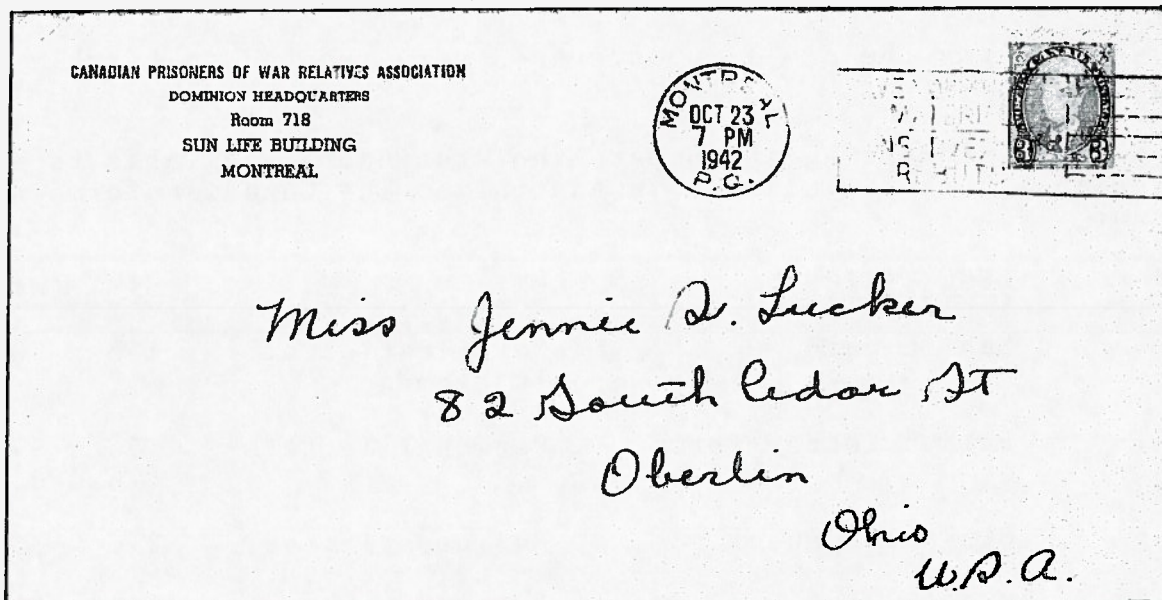 CANADIAN PRISONERS OF WAR RELATIVES ASSOCIATION
DOMINION HEADQUARTERS
Room 718
SUN LIFE BUILDING
MONTREAL
MONTREAL
OCT 23
7 PM
1942
P.Q.
3 3
Miss Jennie D. Lucker
82 South Cedar St
Oberlin
Ohio
U.S.A.